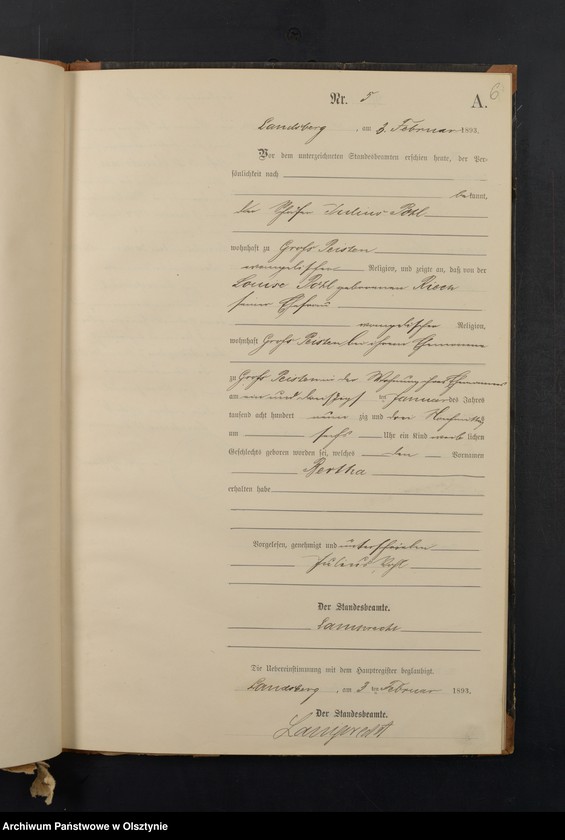 6
Nr. 5 A.
Landsberg, am 3. Februar 1893.
Vor dem unterzeichneten Standesbeamten erschien heute, der Per-
sönlichkeit nach
bekannt,
der Julius Pohl
wohnhaft zu Groß Peisten
evangelischer Religion, und zeigte an, daß von der
Louise Pohl geborenen
seiner Ehefrau
evangelischer Religion,
wohnhaft Groß Peisten bei ihrem Ehemanne
zu Groß Peisten in der Wohnung ihres Ehemannes
am ein und dreißigsten Januar des Jahres
tausend acht hundert neun zig und drei Nachmittags
um sechs Uhr ein Kind weiblichen
Geschlechts geboren worden sei, welches den Vornamen
Bertha
erhalten habe
Vorgelesen, genehmigt und unterschrieben
Julius Pohl
Der Standesbeamte.
Lamprecht
Die Uebereinstimmung mit dem Hauptregister beglaubigt.
Landsberg, am 3ten Februar 1893.
Der Standesbeamte.
Lamprecht
Archiwum Państwowe w Olsztynie